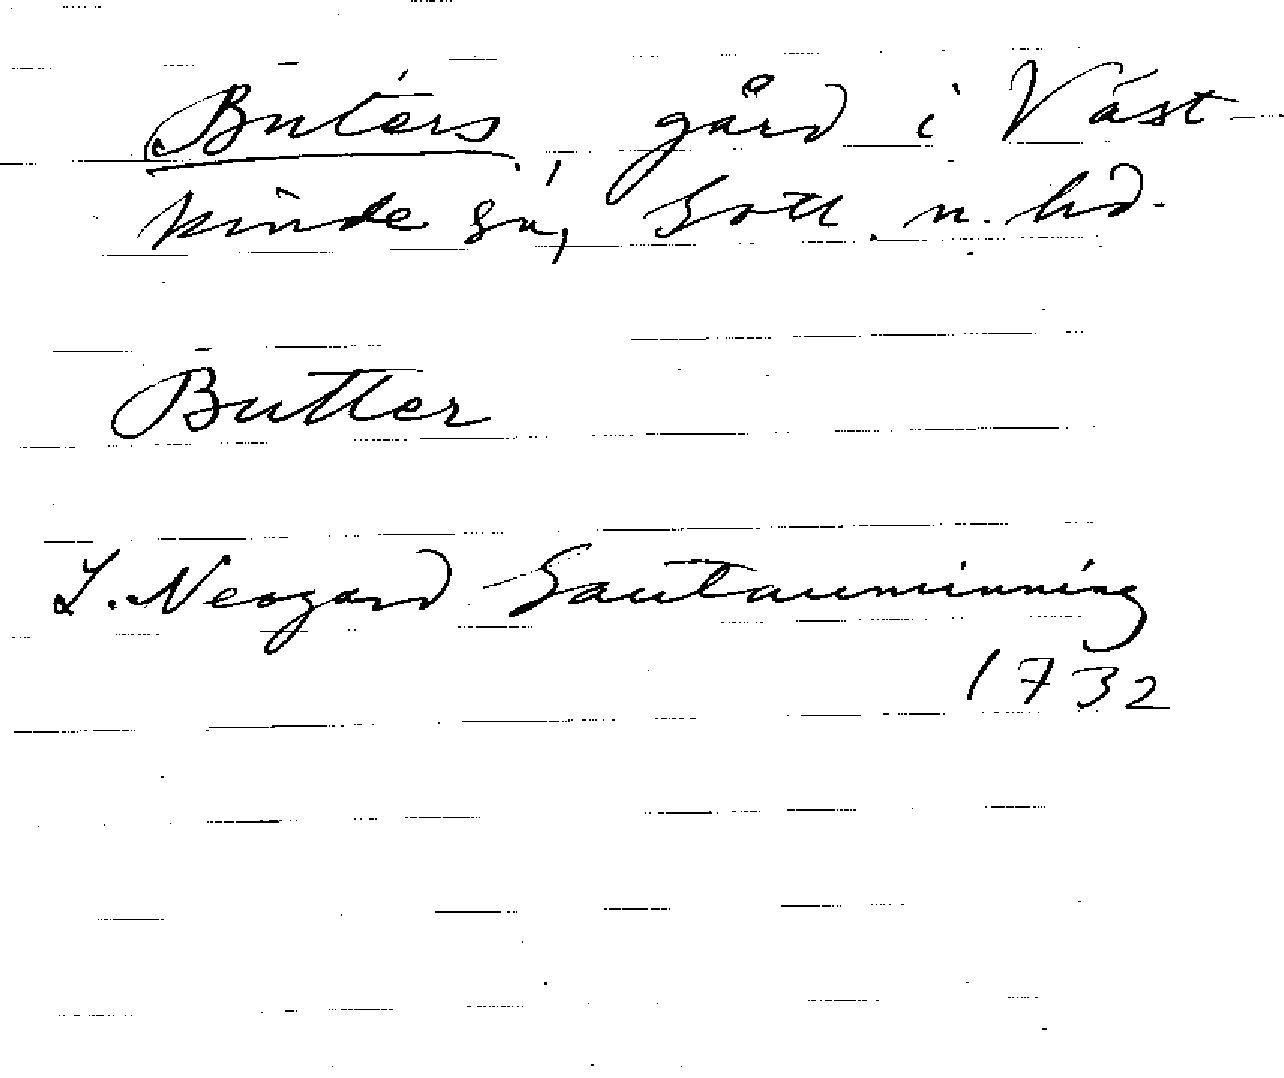 Buters, gård i Väst-
kinde sn, Gotl. n. hd.
Butter
L. Neogard Gautauminning
1732